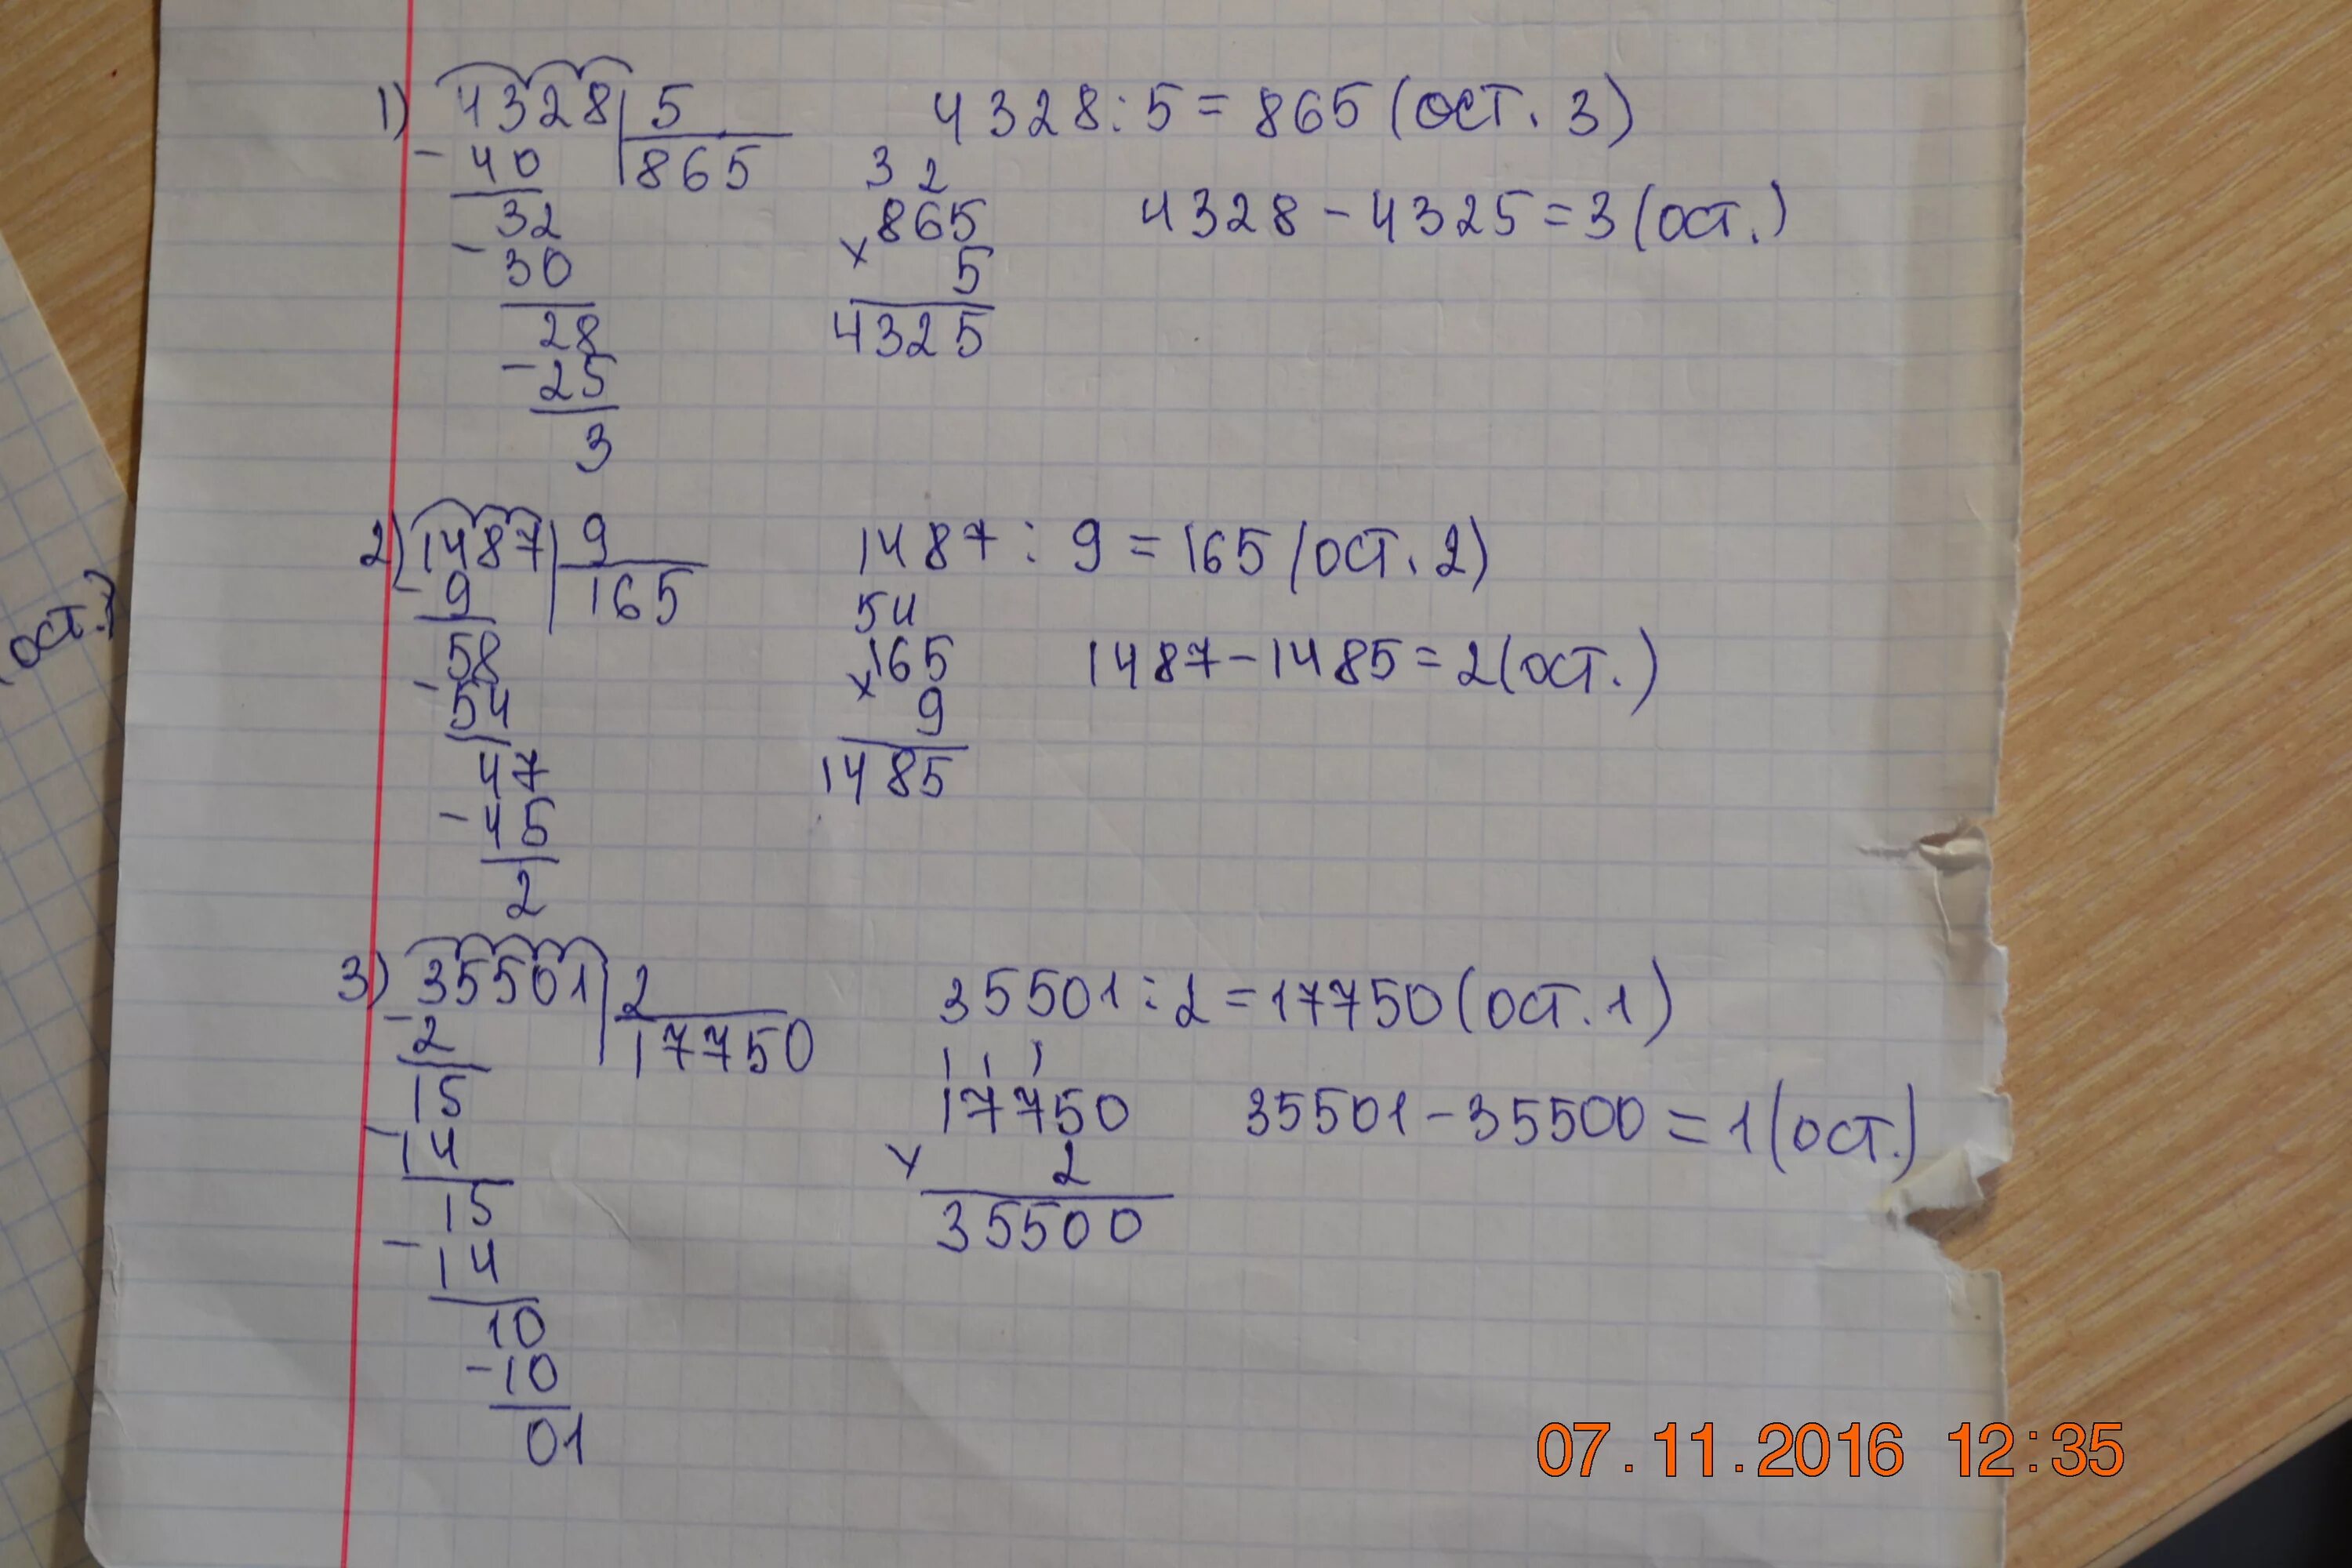 1) 4328 | 5
- 40 | 865
32
- 30
28
- 25
3
4328 : 5 = 865 (ост. 3)
3 2
865
× 5
4325
4328 - 4325 = 3 (ост.)
2) 1487 | 9
- 9 | 165
58
- 54
47
- 45
2
1487 : 9 = 165 (ост. 2)
54
165
× 9
1485
1487 - 1485 = 2 (ост.)
3) 35501 | 2
- 2 | 17750
15
- 14
15
- 14
10
- 10
01
35501 : 2 = 17750 (ост. 1)
1 1 1
17750
× 2
35500
35501 - 35500 = 1 (ост.)
(ост.)
07.11.2016 12:35